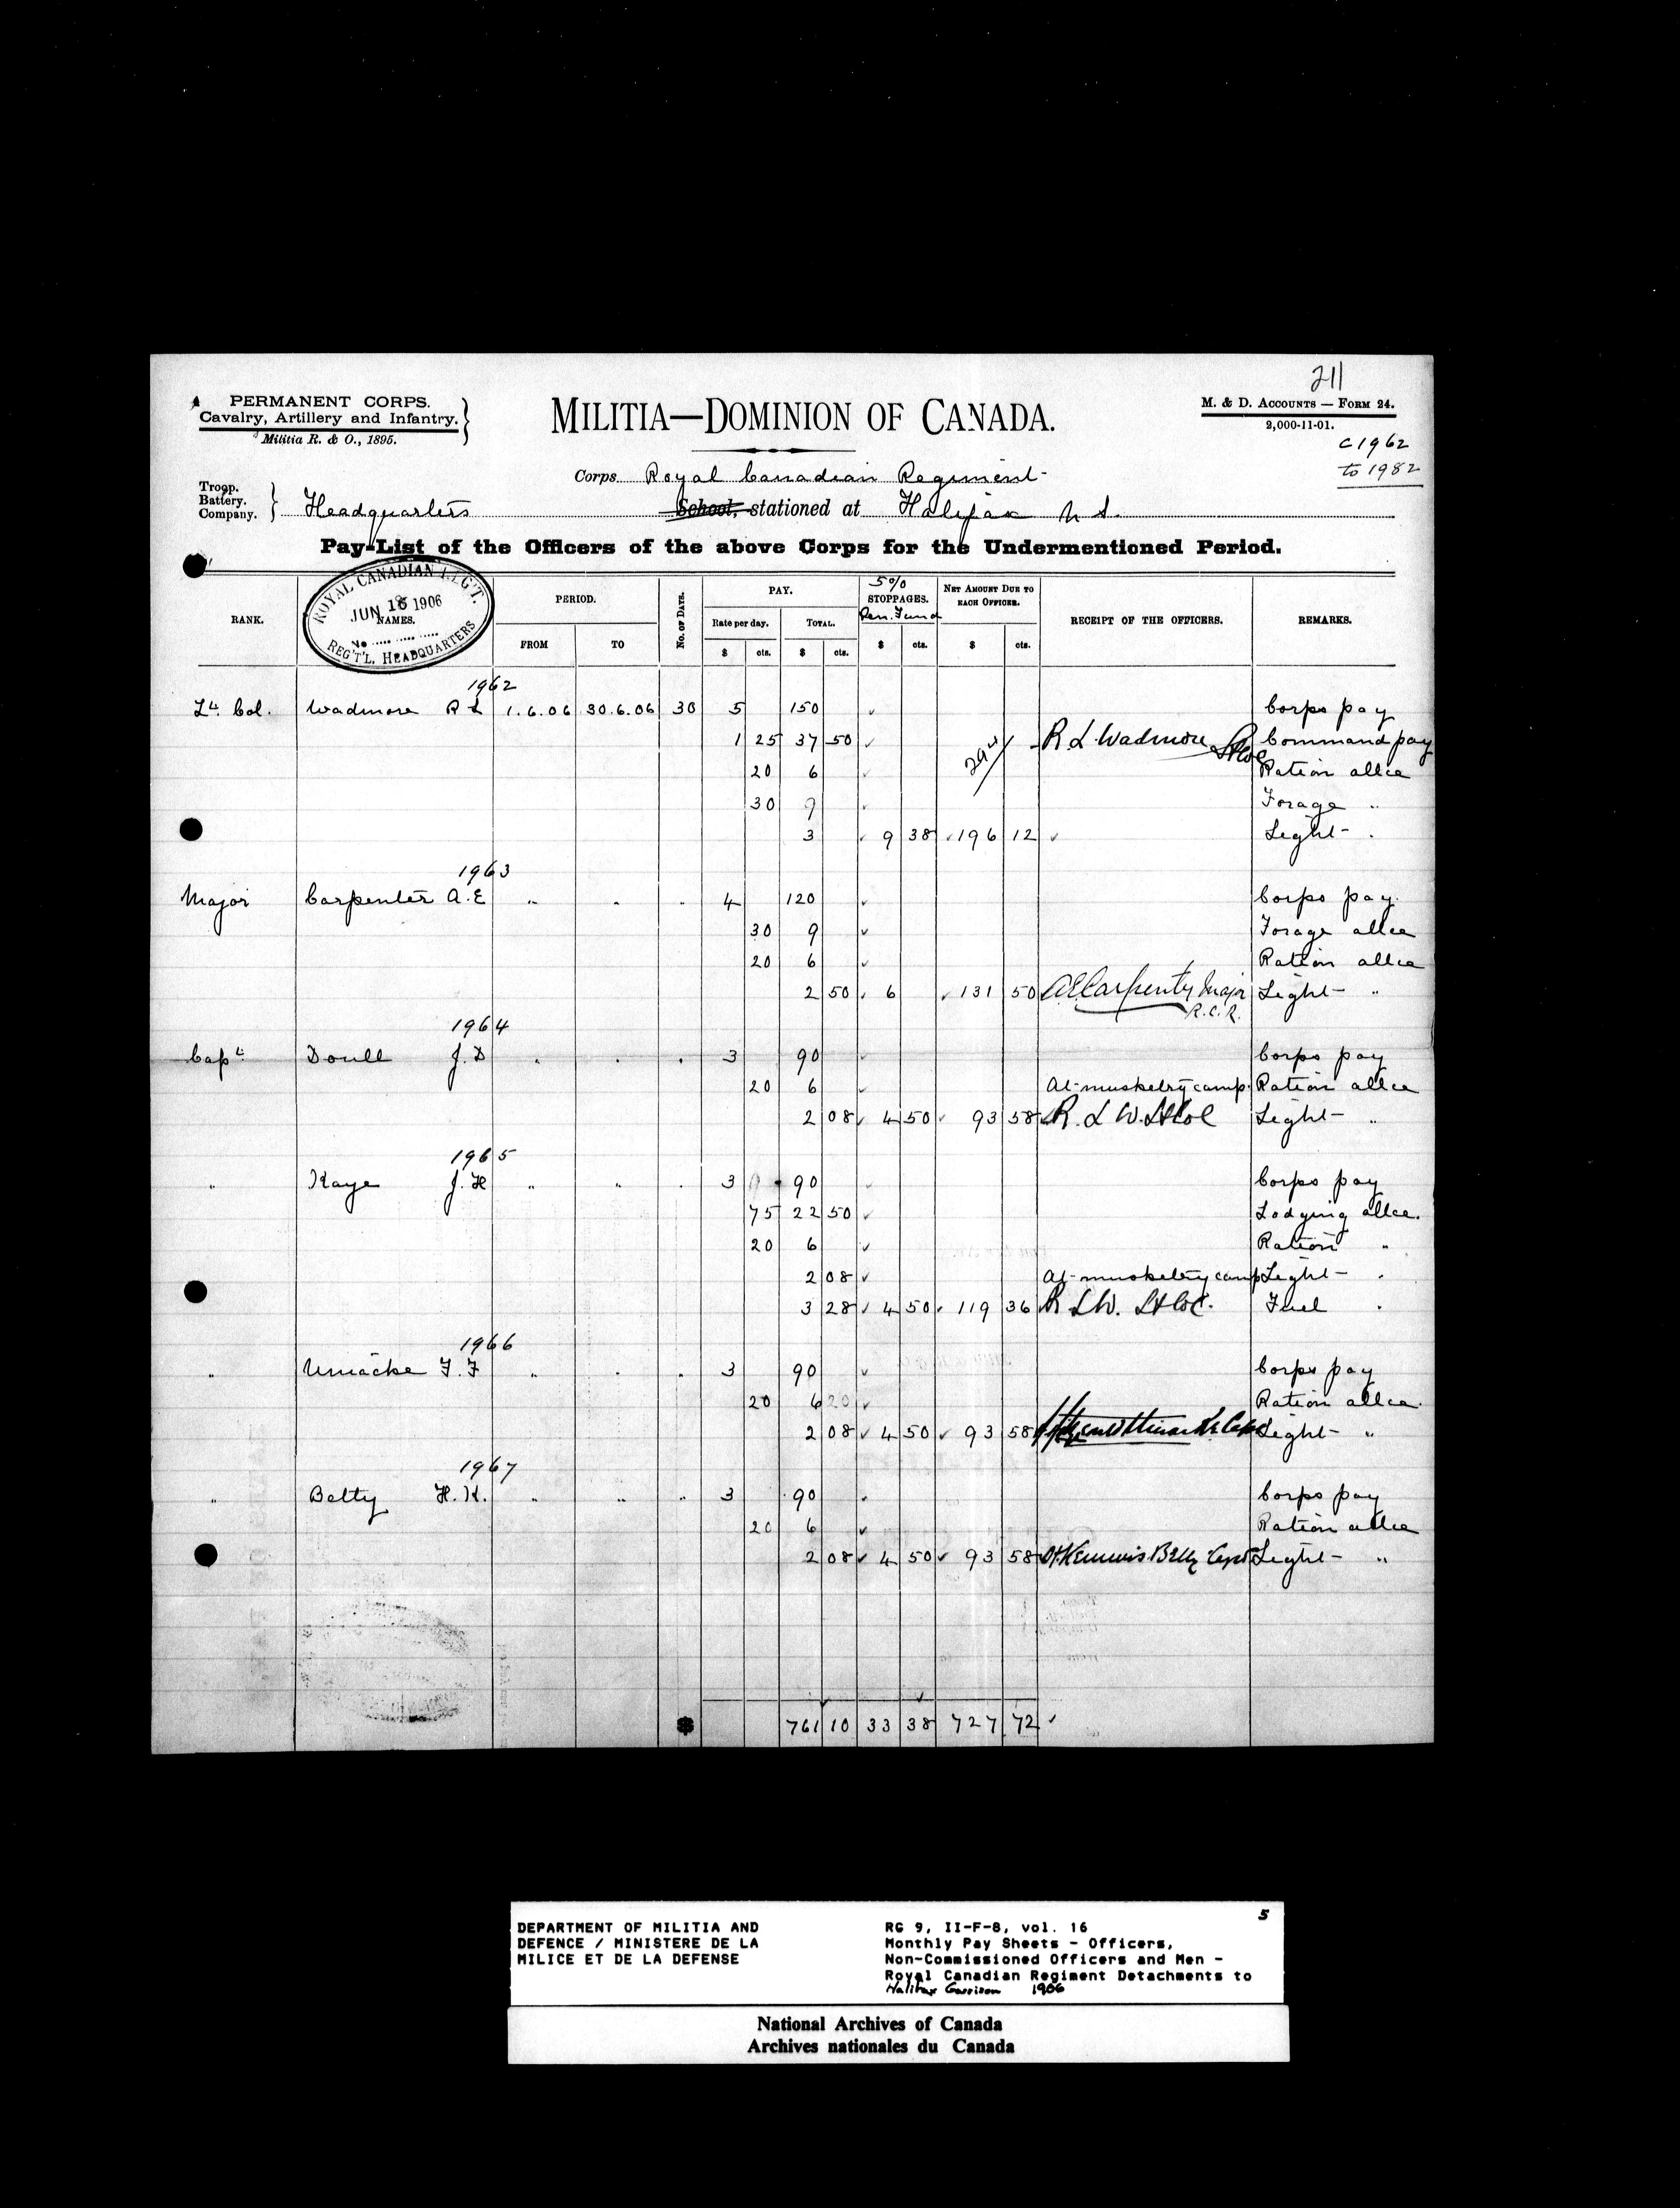 211
PERMANENT CORPS.
Cavalry, Artillery and Infantry.
Militia R. & O., 1895.
MILITIA—DOMINION OF CANADA.
M. & D. ACCOUNTS — FORM 24.
2,000-11-01.
C 1962
to 1982
Corps Royal Canadian Regiment
Troop.
Battery.
Company.
Headquarters School, stationed at Halifax N S.
Pay-List of the Officers of the above Corps for the Undermentioned Period.
ROYAL CANADIAN REG'T.
JUN 16 1906
No
REG'T'L. HEADQUARTERS
RANK. NAMES. PERIOD. No. OF DAYS. PAY. 5% STOPPAGES. Pen. Fund NET AMOUNT DUE TO EACH OFFICER. RECEIPT OF THE OFFICERS. REMARKS.
FROM TO Rate per day. TOTAL.
$ cts. $ cts. $ cts. $ cts.
1962
Lt. Col. Wadmore R L 1.6.06 30.6.06 30 5 150 Corps pay
1 25 37 50 R. L. Wadmore Lt Col Command pay
20 6 Ration allce
30 9 Forage "
3 9 38 196 12 Light "
1963
Major Carpenter A. E " " " 4 120 Corps pay.
30 9 Forage allce
20 6 Ration allce
2 50 6 131 50 A E Carpenter Major Light "
R.C.R.
1964
Capt. Doull J. D " " " 3 90 Corps pay
20 6 At musketry camp. Ration allce
2 08 4 50 93 58 R. L W. Lt Col Light "
1965
" Kaye J. H " " " 3 90 Corps pay
75 22 50 Lodging allce.
20 6 Ration "
2 08 At musketry camp Light "
3 28 4 50 119 36 R L W. Lt Col. Fuel "
1966
" Uniacke F. F " " " 3 90 Corps pay
20 6 20 Ration allce.
2 08 4 50 93 58 Light "
1967
" Betty H. K. " " " 3 90 Corps pay
20 6 Ration allce
2 08 4 50 93 58 H Kemmis Betty Capt Light "
761 10 33 38 727 72
5
DEPARTMENT OF MILITIA AND
DEFENCE / MINISTERE DE LA
MILICE ET DE LA DEFENSE
RG 9, II-F-8, vol. 16
Monthly Pay Sheets - Officers,
Non-Commissioned Officers and Men -
Royal Canadian Regiment Detachments to
Halifax Garrison 1906
National Archives of Canada
Archives nationales du Canada